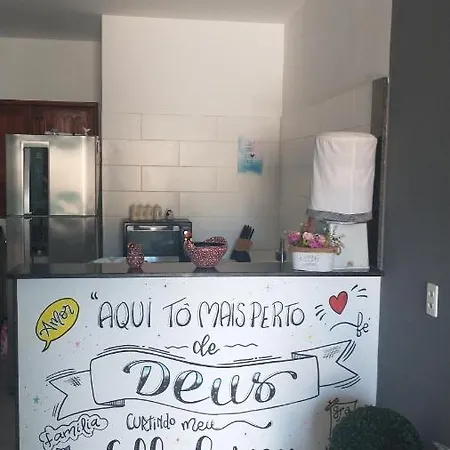 Amor
"AQUI TÔ MAIS PERTO
de
DEUS
CURTINDO MEU
fé
Família